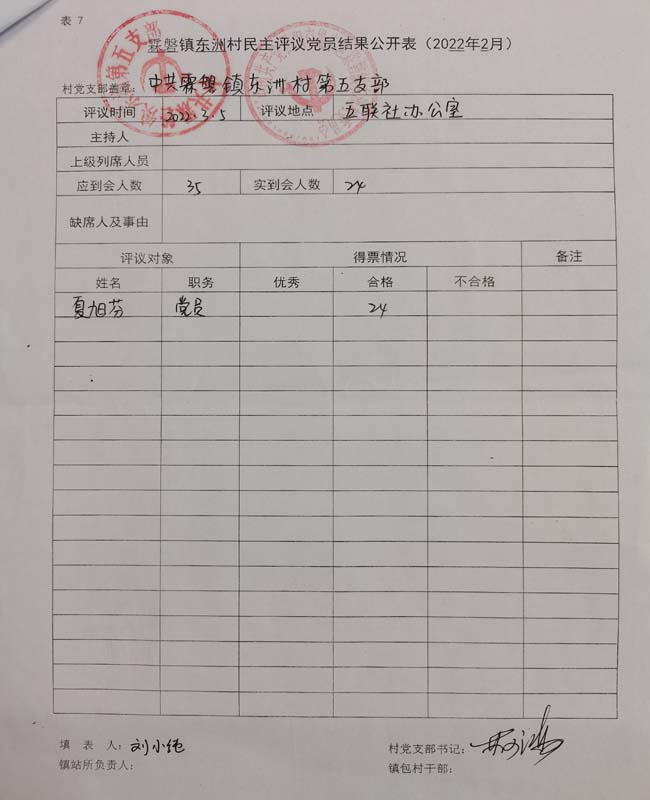 表 7
霖磐镇东洲村民主评议党员结果公开表（2022年2月）
村党支部盖章：中共霖磐镇东洲村第五支部
评议时间 2022.3.5 评议地点 五联社办公室
主持人
上级列席人员
应到会人数 35 实到会人数 24
缺席人及事由
评议对象 得票情况 备注
姓名 职务 优秀 合格 不合格
夏旭芬 党员 24
填 表 人：刘小纯
村党支部书记：
镇站所负责人：
镇包村干部：